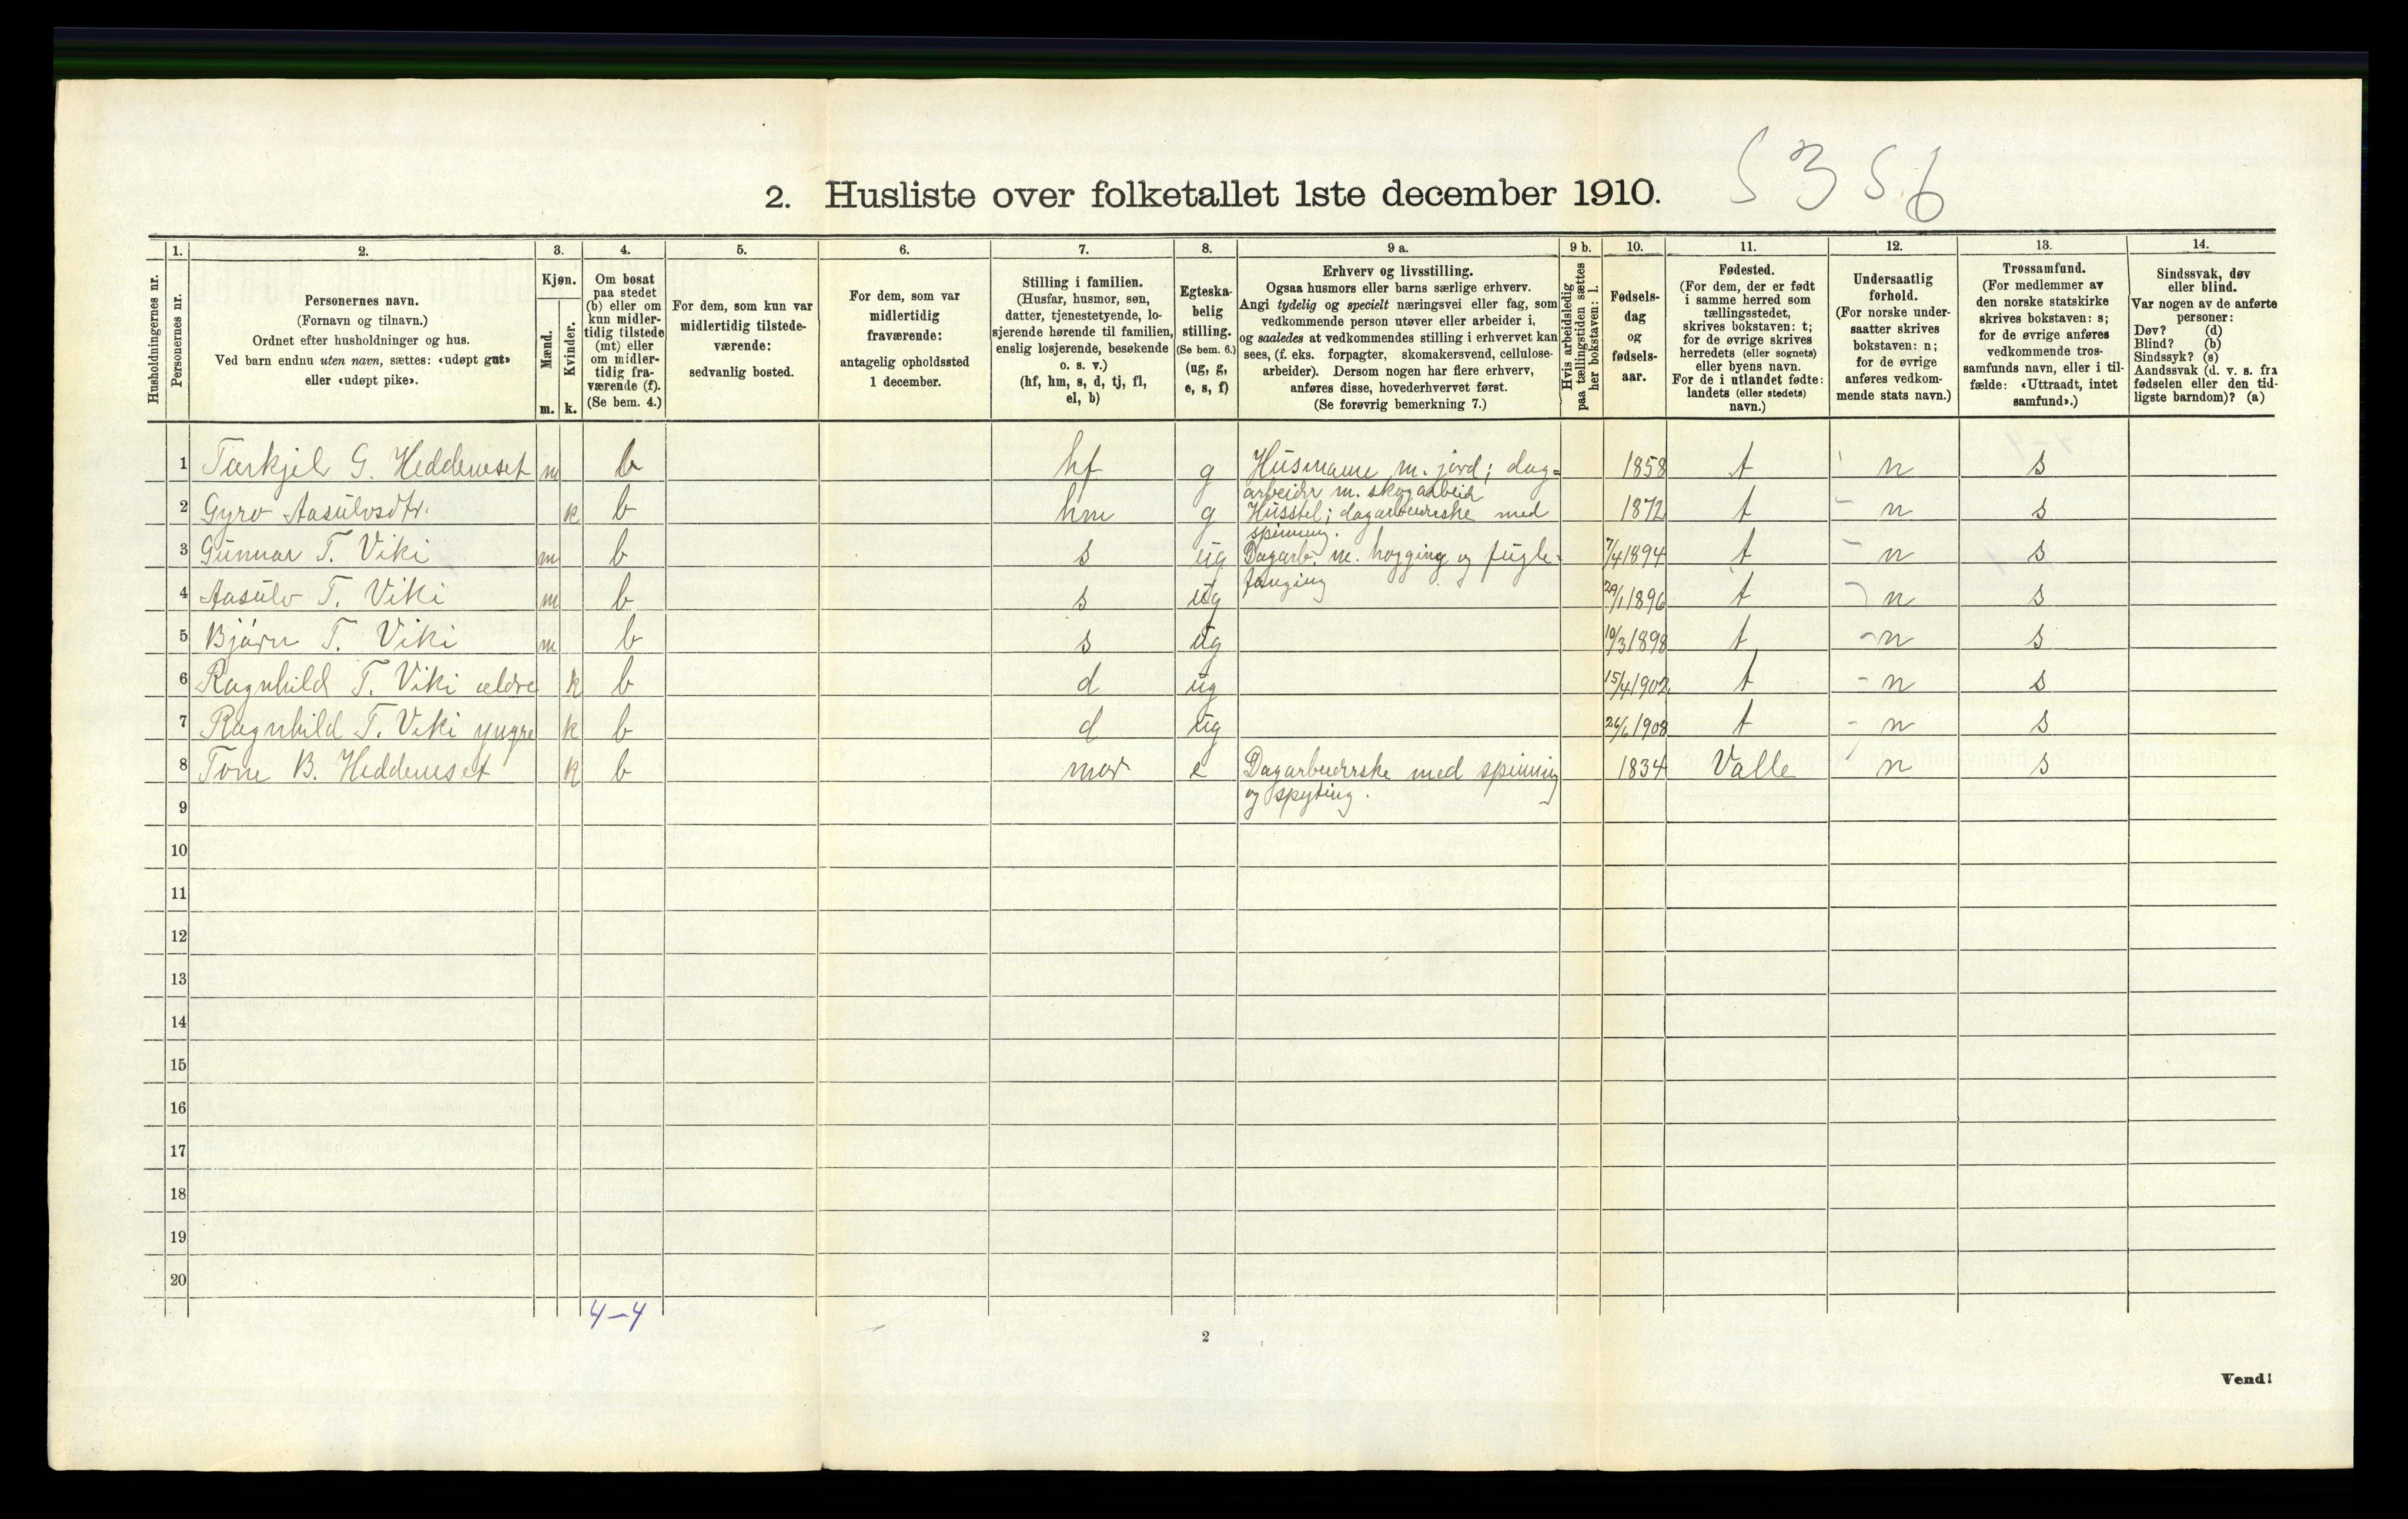 5356
2. Husliste over folketallet 1ste december 1910.
Husholdningernes nr.
1.
Personernes nr.
2.
Personernes navn.
(Fornavn og tilnavn.)
Ordnet efter husholdninger og hus.
Ved barn endnu uten navn, sættes: «udøpt gut»
eller «udøpt pike».
3.
Kjøn.
Mænd.
m.
Kvinder.
k.
4.
Om bosat
paa stedet
(b) eller om
kun midler-
tidig tilstede
(mt) eller
om midler-
tidig fra-
værende (f).
(Se bem. 4.)
5.
For dem, som kun var
midlertidig tilstede-
værende:
sedvanlig bosted.
6.
For dem, som var
midlertidig
fraværende:
antagelig opholdssted
1 december.
7.
Stilling i familien.
(Husfar, husmor, søn,
datter, tjenestetyende, lo-
sjerende hørende til familien,
enslig losjerende, besøkende
o. s. v.)
(hf, hm, s, d, tj, fl,
el, b)
8.
Egteska-
belig
stilling.
(Se bem. 6.)
(ug, g,
e, s, f)
9 a.
Erhverv og livsstilling.
Ogsaa husmors eller barns særlige erhverv.
Angi tydelig og specielt næringsvei eller fag, som
vedkommende person utøver eller arbeider i,
og saaledes at vedkommendes stilling i erhvervet kan
sees, (f. eks. forpagter, skomakersvend, cellulose-
arbeider). Dersom nogen har flere erhverv,
anføres disse, hovederhvervet først.
(Se forøvrig bemerkning 7.)
9 b.
Hvis arbeidsledig
paa tællingstiden sættes
her bokstaven: l.
10.
Fødsels-
dag
og
fødsels-
aar.
11.
Fødested.
(For dem, der er født
i samme herred som
tællingsstedet,
skrives bokstaven: t;
for de øvrige skrives
herredets (eller sognets)
eller byens navn.
For de i utlandet fødte:
landets (eller stedets)
navn.)
12.
Undersaatlig
forhold.
(For norske under-
saatter skrives
bokstaven: n;
for de øvrige
anføres vedkom-
mende stats navn.)
13.
Trossamfund.
(For medlemmer av
den norske statskirke
skrives bokstaven: s;
for de øvrige anføres
vedkommende tros-
samfunds navn, eller i til-
fælde: «Uttraadt, intet
samfund».)
14.
Sindssvak, døv
eller blind.
Var nogen av de anførte
personer:
Døv? (d)
Blind? (b)
Sindssyk? (s)
Aandssvak (d. v. s. fra
fødselen eller den tid-
ligste barndom)? (a)
1 Tarkjel G. Heddeneset m b hf g Husmann m. jord; dag- 1858 t n s
arbeider m. skogarbeid
2 Gyro Aasulvsdtr. k b hm g Husstel; dagarbeiderske med 1872 t n s
spinning.
3 Gunnar T. Viki m b s ug Dagarb. m. hogging og fugle- 7/4 1894 t n s
fanging
4 Aasulv T. Viki m b s ug 29/1 1896 t n s
5 Bjørn T. Viki m b s ug 10/3 1898 t n s
6 Ragnhild T. Viki ældre k b d ug 15/4 1902 t n s
7 Ragnhild T. Viki yngre k b d ug 26/6 1908 t n s
8 Tone B. Heddeneset k b mor e Dagarbeiderske med spinning 1834 Valle n s
og spyting.
9
10
11
12
13
14
15
16
17
18
19
20
4-4
2
Vend!